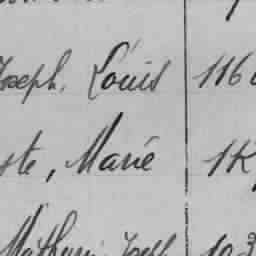 Joseph, Louis 116
ste, Marie 1K
Mathurin Joseph 103